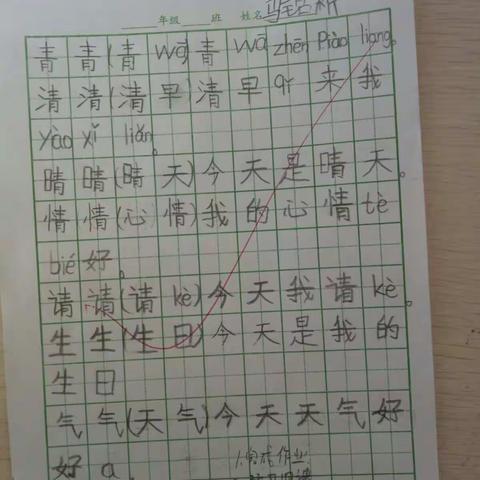 年级 班 姓名
青青(青wā)青wā zhēn Piào liang。
清清(清早)清早qǐ来我
yào xǐ liǎn。
晴晴(晴天)今天是晴天。
情情(心情)我的心情tè
bié好。
请请(请kè)今天我请kè。
生生(生日)今天是我的
生日
气气(天气)今天天气好
好a。